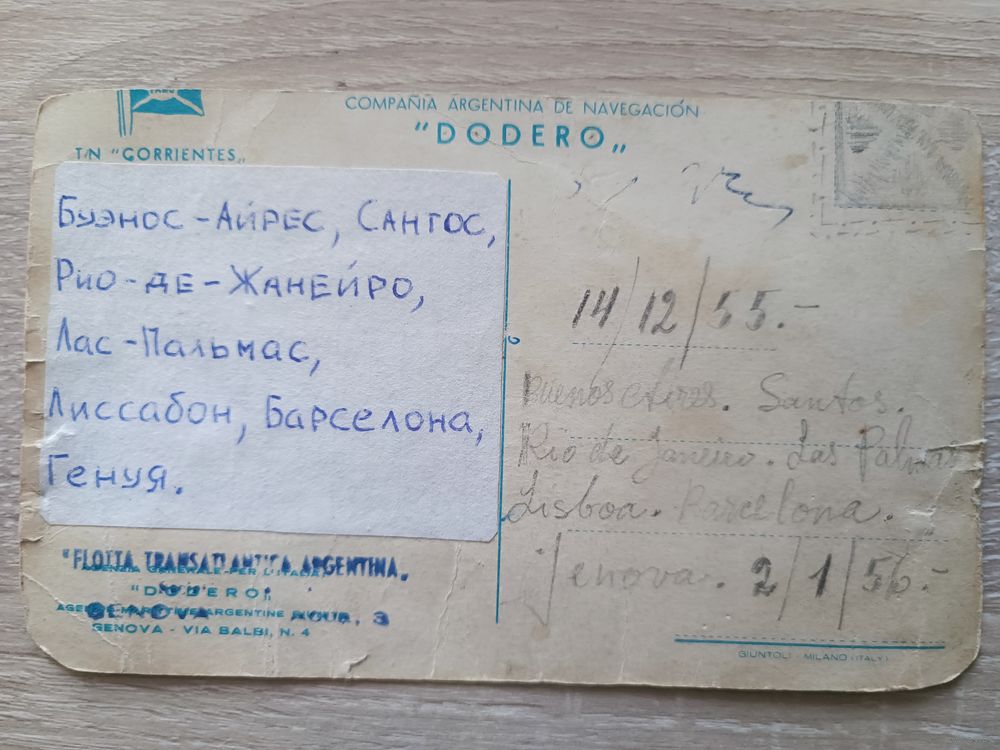 COMPAÑIA ARGENTINA DE NAVEGACIÓN
"DODERO"
T/N "CORRIENTES"
Буэнос-Айрес, Сантос,
Рио-де-Жанейро,
Лас-Пальмас,
Лиссабон, Барселона,
Генуя.
14/12/55.-
Buenos Aires. Santos.
Rio de Janeiro. Las Palmas
Lisboa. Barcelona.
Genova. 2/1/56.-
"FLOTTA TRANSATLANTICA ARGENTINA.
AGENZIA GENERALE PER L'ITALIA
"DODERO"
GENOVA 3
AGENZIE MARITTIME ARGENTINE
GENOVA - VIA BALBI, N. 4
GIUNTOLI - MILANO (ITALY)